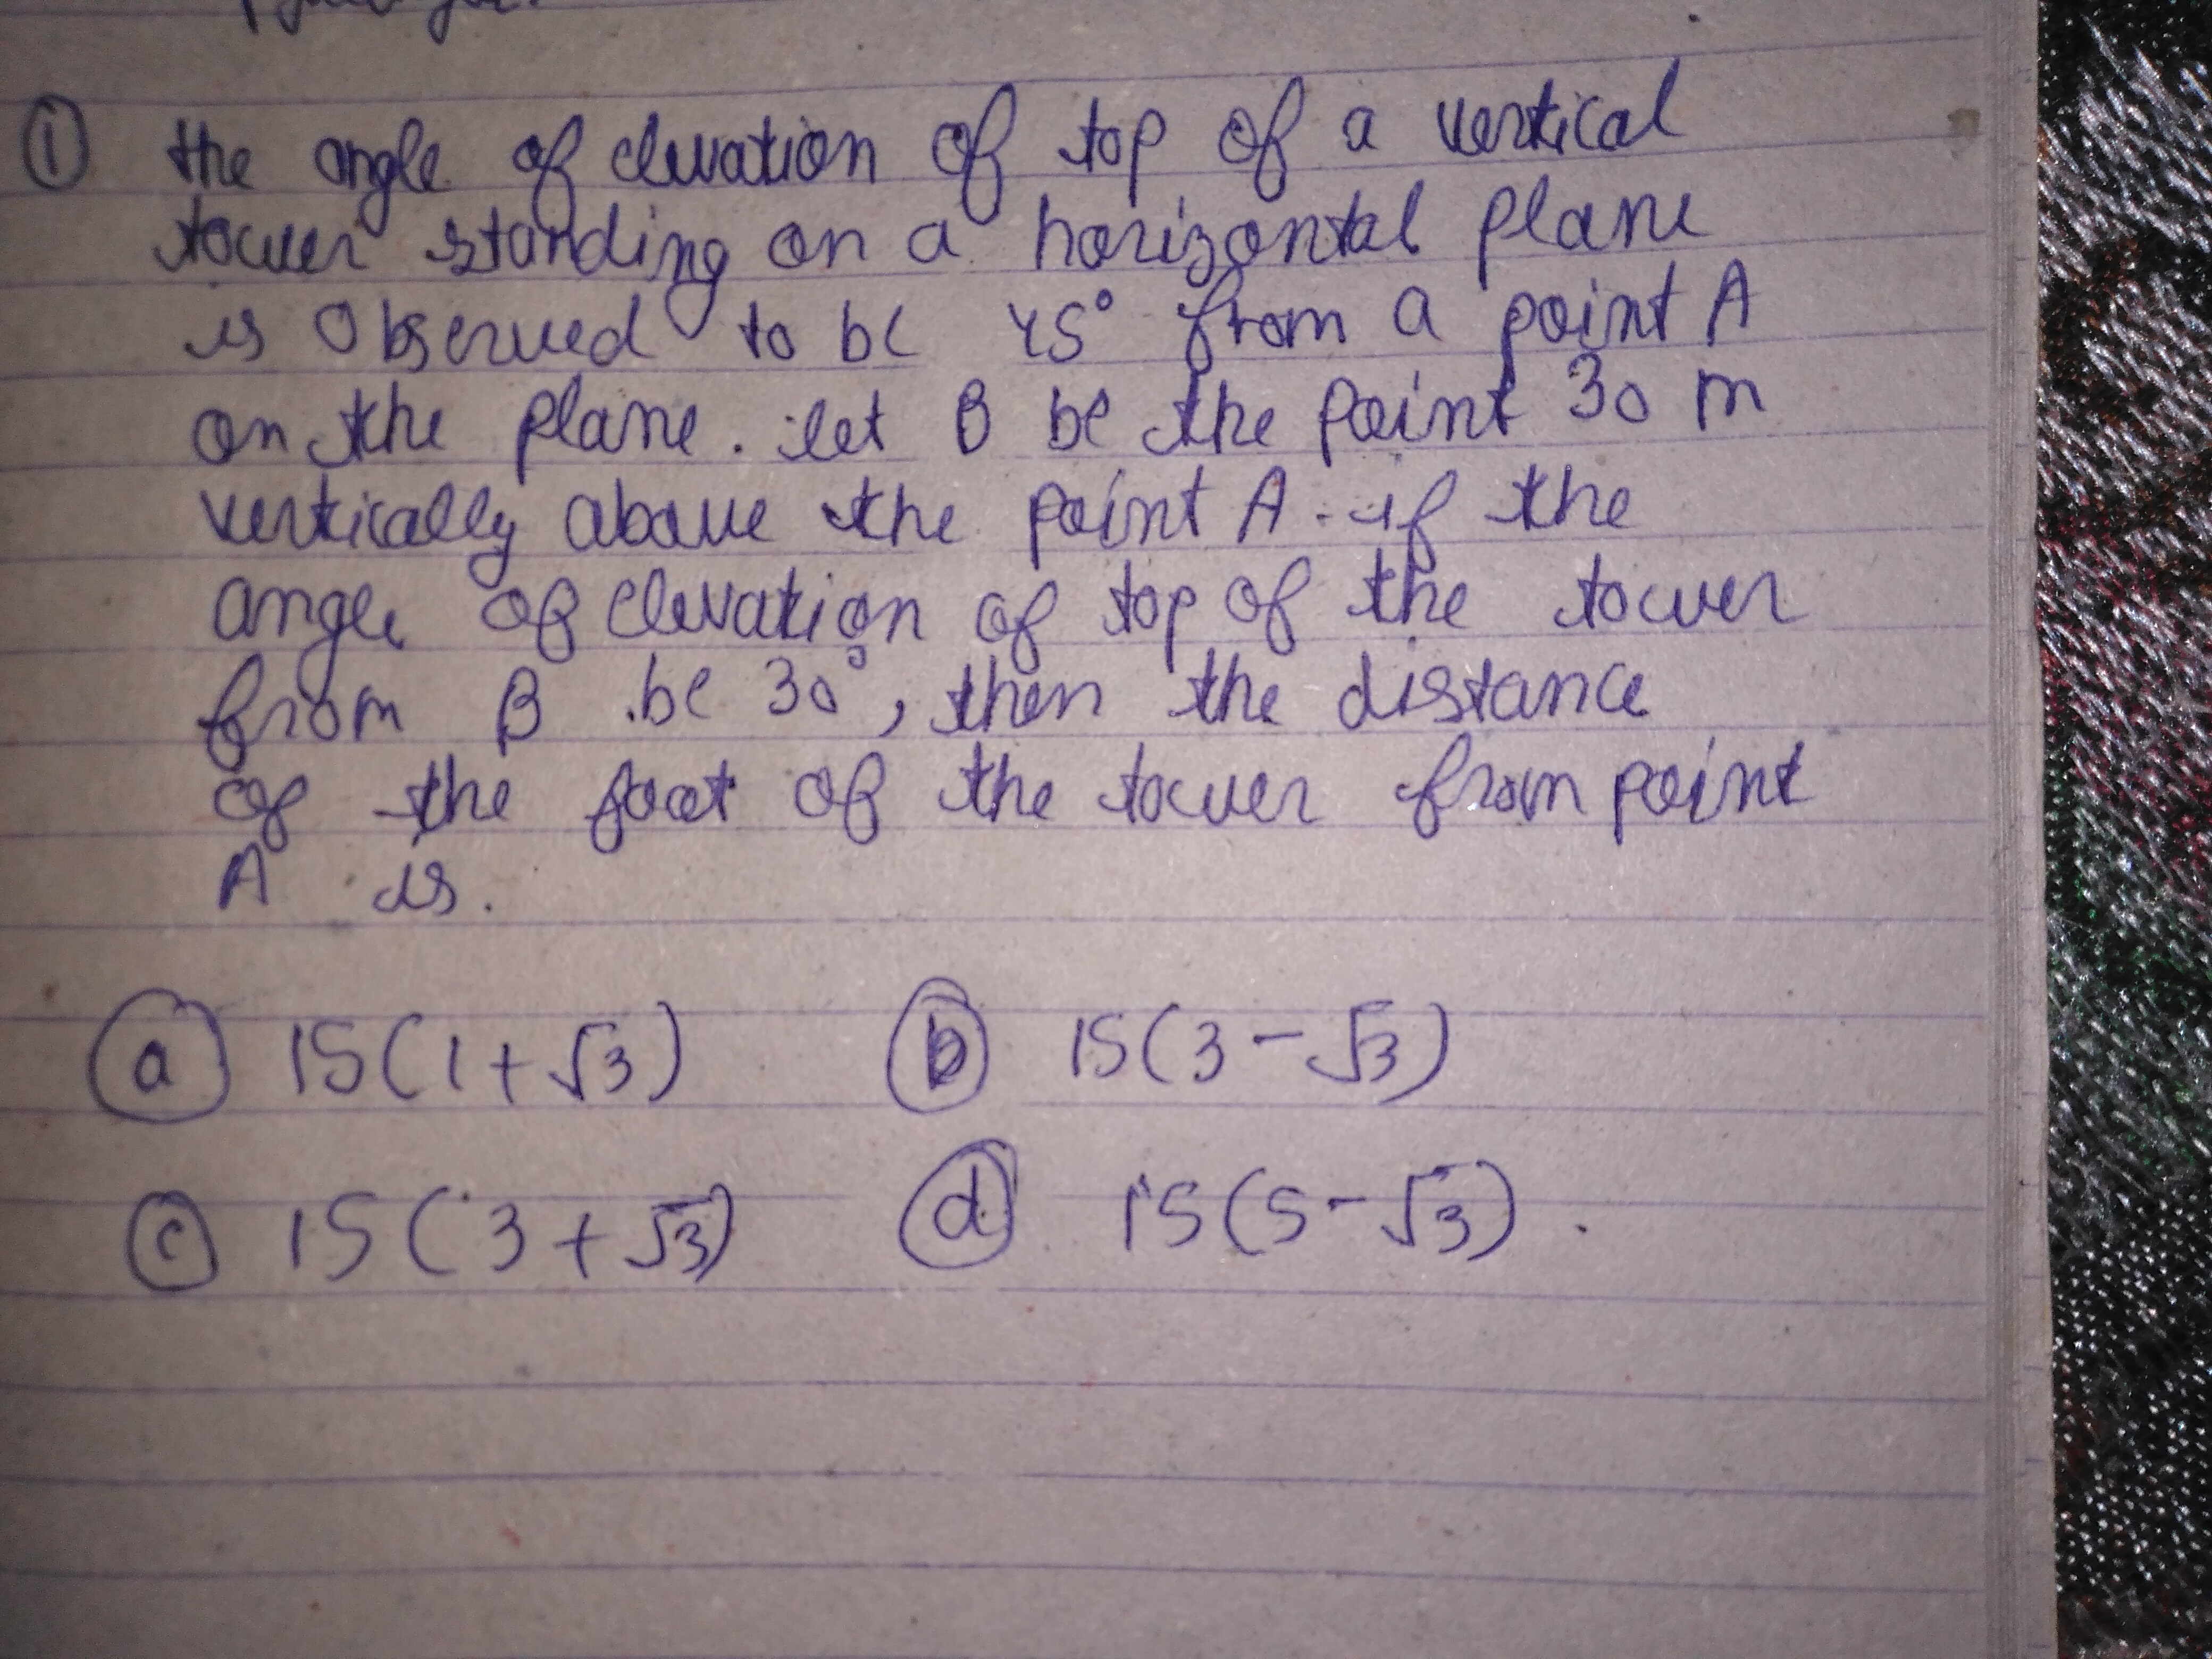 ① the angle of elevation of top of a vertical
tower standing on a horizontal plane
is observed to be 45° from a point A
on the plane. let B be the point 30 m
vertically above the point A. if the
angle of elevation of top of the tower
from B be 30°, then the distance
of the foot of the tower from point
A is.
ⓐ 15(1+√3) ⓑ 15(3-√3)
ⓒ 15(3+√3) ⓓ 15(5-√3).